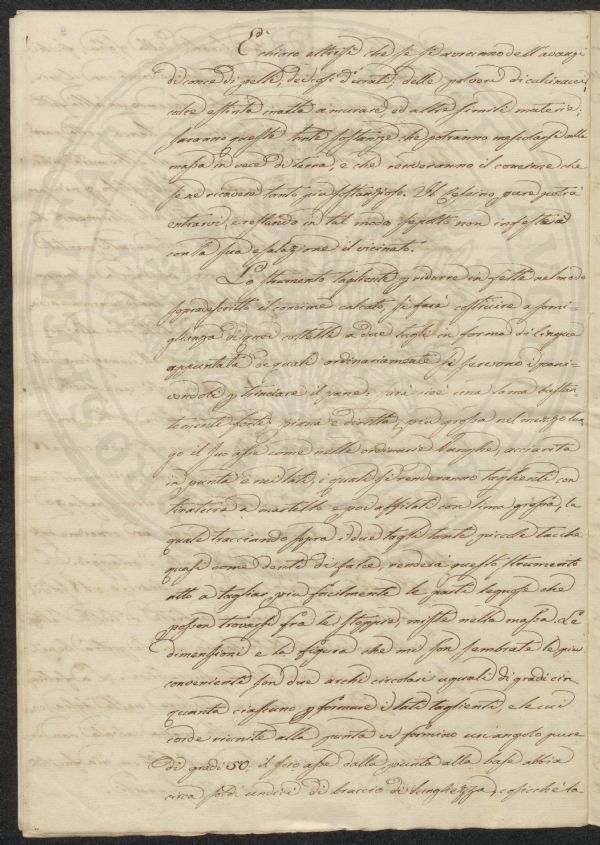 È chiaro altresì che se si avranno dell'avanzi
di conce di pelli, dei cosi d'urati, delle polveri di calcinacci
calce estinta inatta a murare, ed altre simili materie,
saranno queste tante sostanze che potranno mescolarsi alla
massa in vece di terra, e che renderanno il concime che
se ne ricaverà tanto più sostanzioso. Il Pecorino pure potrà
entrarvi, e restando in tal modo sepolto non infesterà
con la sua esalazione il vicinato.
Lo strumento tagliente p ridurre in fette nel modo
sopradescritto il concime calcato, si farà costruire a somi-
glianza di quei coltelli a due tagli in forma di lingua
appuntata de quali ordinariamente si servono i pani-
vendoli p trinciare il pane: sarà cioè una lama bastan-
temente forte, piana e diritta, più grossa nel mezzo lun-
go il suo asse come nelle ordinarie Vanghe, acciarita
in punta e nei lati, i quali si renderanno taglienti con
tiratura a martello e poi affilati con lima grossa, la
quale tracciando sopra i due tagli tante piccole tacche
quasi come denti di falce, renderà questo strumento
atto a tagliar più facilmente le parti legnose che
posson trovarsi fra le stoppie miste nella massa. Le
dimensioni e la figura che mi son sembrate le più
convenienti son due archi circolari uguali di gradi cin-
quanta ciascuno p formare i lati taglienti, e le cui
corde riunite alla punta vi formino un'angolo pure
di gradi 50. il suo asse dalla punta alla base abbia
circa soldi undici di braccio di lunghezza, cosicchè la